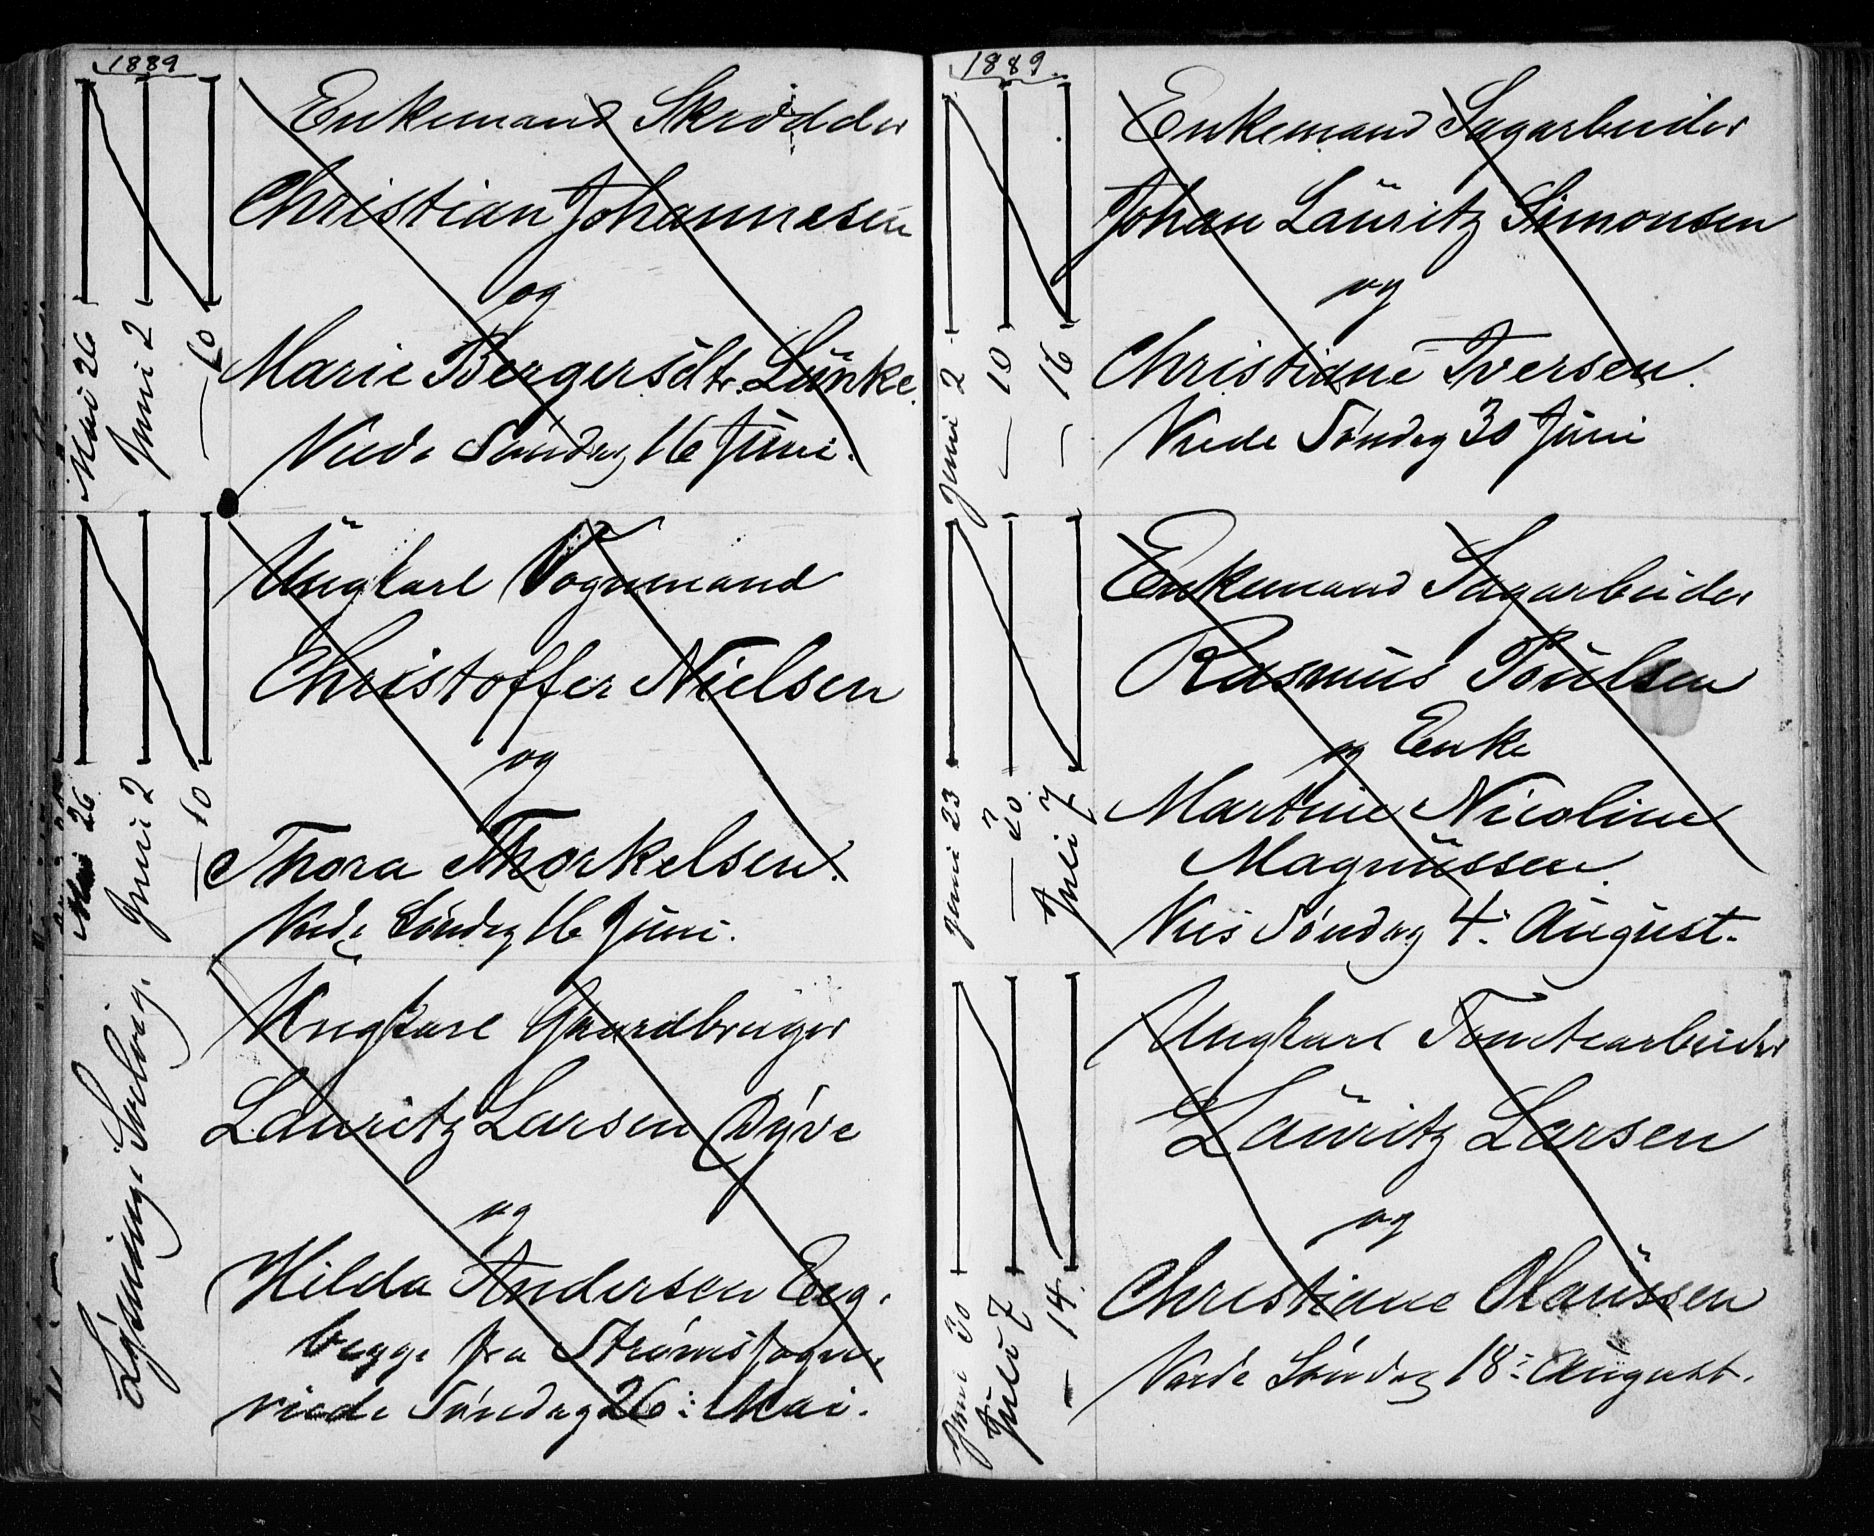 1889
Mai 26
Juni 2
— 10
Enkemand Skrædder
Christian Johannesen
og
Marie Bergersdtr. Lünke.
Viede Søndag 16 Juni.
Mai 26
Juni 2
— 10
Ungkarl Vognmand
Christoffer Nielsen
og
Thora Thorkelsen.
Viede Søndag 16 Juni.
Løsning i Solvig.
Ungkarl Gaardbruger
Lauritz Larsen Dyve
og
Hilda Andersen Eeg.
begge fra Strømsfogn.
viede Søndag 26: Mai.
1889.
Juni 2
— 10
— 16
Enkemand Sagarbeider
Johan Lauritz Simonsen
og
Christiane Iversen.
Viede Søndag 30 Juni
Juni 23
— 30
Juli 7
Enkemand Sagarbeider
Rasmus Poulsen
og Enke
Martine Nicoline
Magnussen.
Vies Søndag 4: August.
Juni 30
Juli 7
— 14
Ungkarl Tomtearbeider
Lauritz Larsen
og
Christiane Olaussen
Viede Søndag 18: August.